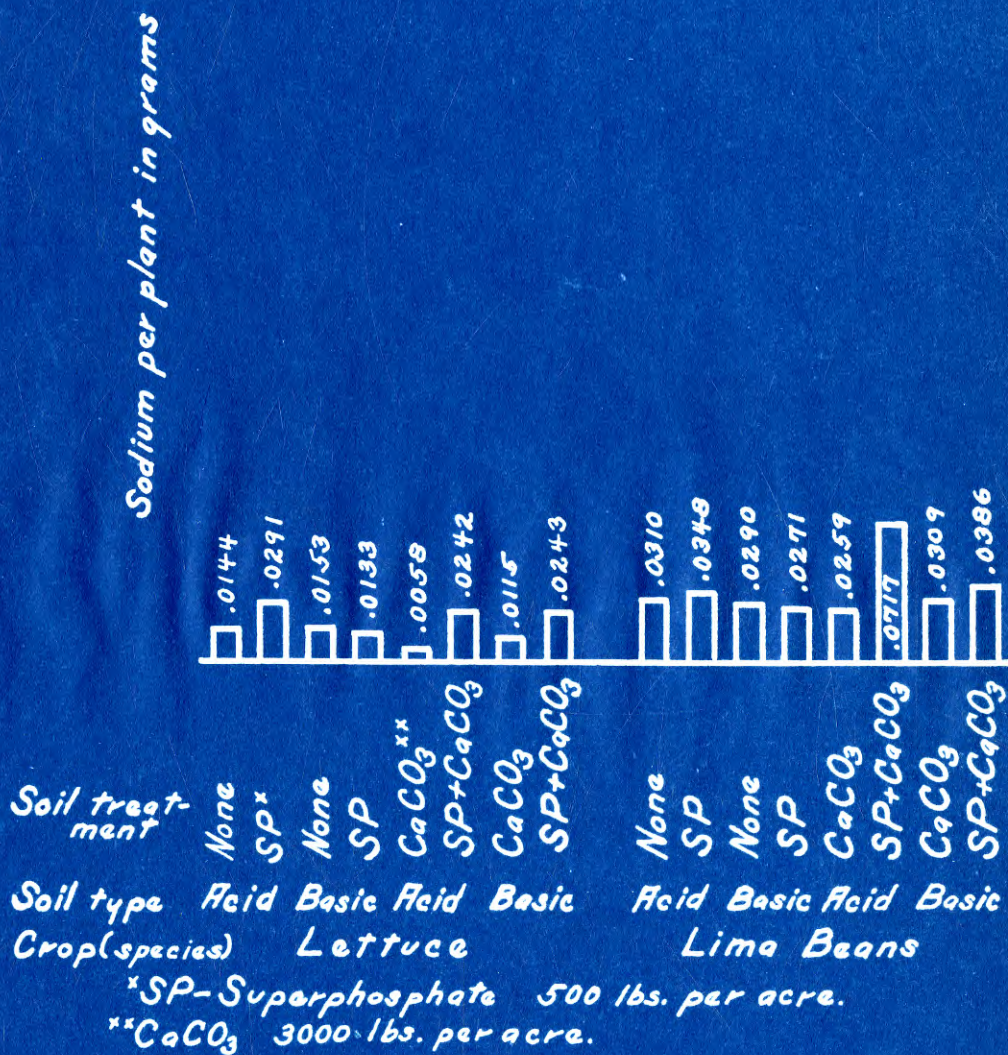 Sodium per plant in grams
.0144 .0291 .0153 .0133 .0058 .0242 .0115 .0243 .0310 .0348 .0290 .0271 .0259 .0717 .0309 .0386
Soil treat-
ment
None SPˣ None SP CaCO₃ˣˣ SP+CaCO₃ CaCO₃ SP+CaCO₃ None SP None SP CaCO₃ SP+CaCO₃ CaCO₃ SP+CaCO₃
Soil type Acid Basic Acid Basic Acid Basic Acid Basic
Crop(species) Lettuce Lima Beans
ˣSP-Superphosphate 500 lbs. per acre.
ˣˣCaCO₃ 3000 lbs. per acre.